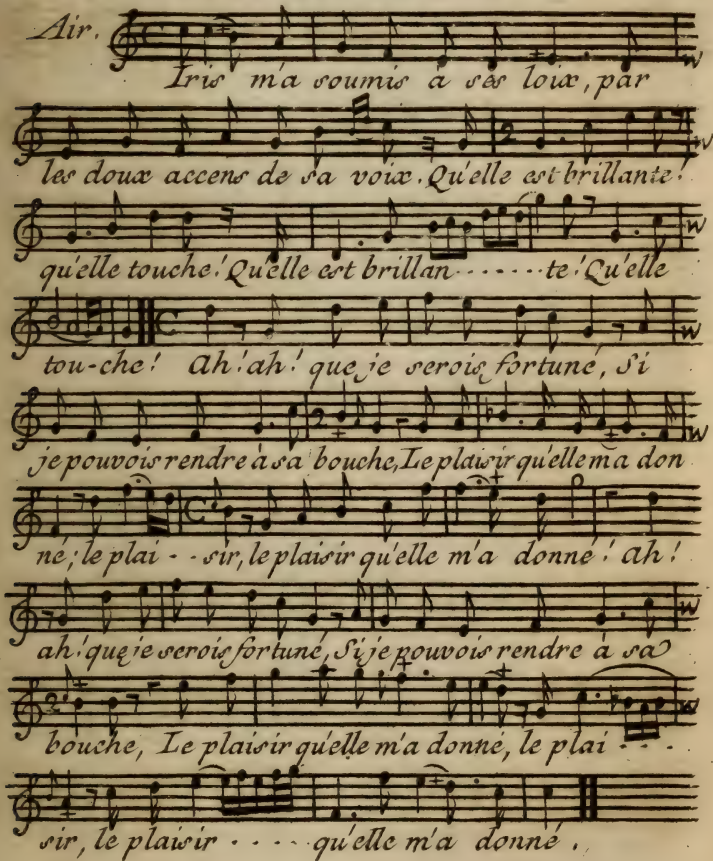 Air.
Iris m'a soumis à ses loix, par
les doux accens de sa voix. Qu'elle est brillante!
qu'elle touche! Qu'elle est brillan . . . . . . . te! Qu'elle
tou-che! Ah! ah! que je serois fortuné, Si
je pouvois rendre à sa bouche, Le plaisir qu'elle m'a don
né; le plai - - sir, le plaisir qu'elle m'a donné! ah!
ah! que je serois fortuné, Si je pouvois rendre à sa
bouche, Le plaisir qu'elle m'a donné, le plai . . . .
sir, le plaisir . . . . . qu'elle m'a donné.